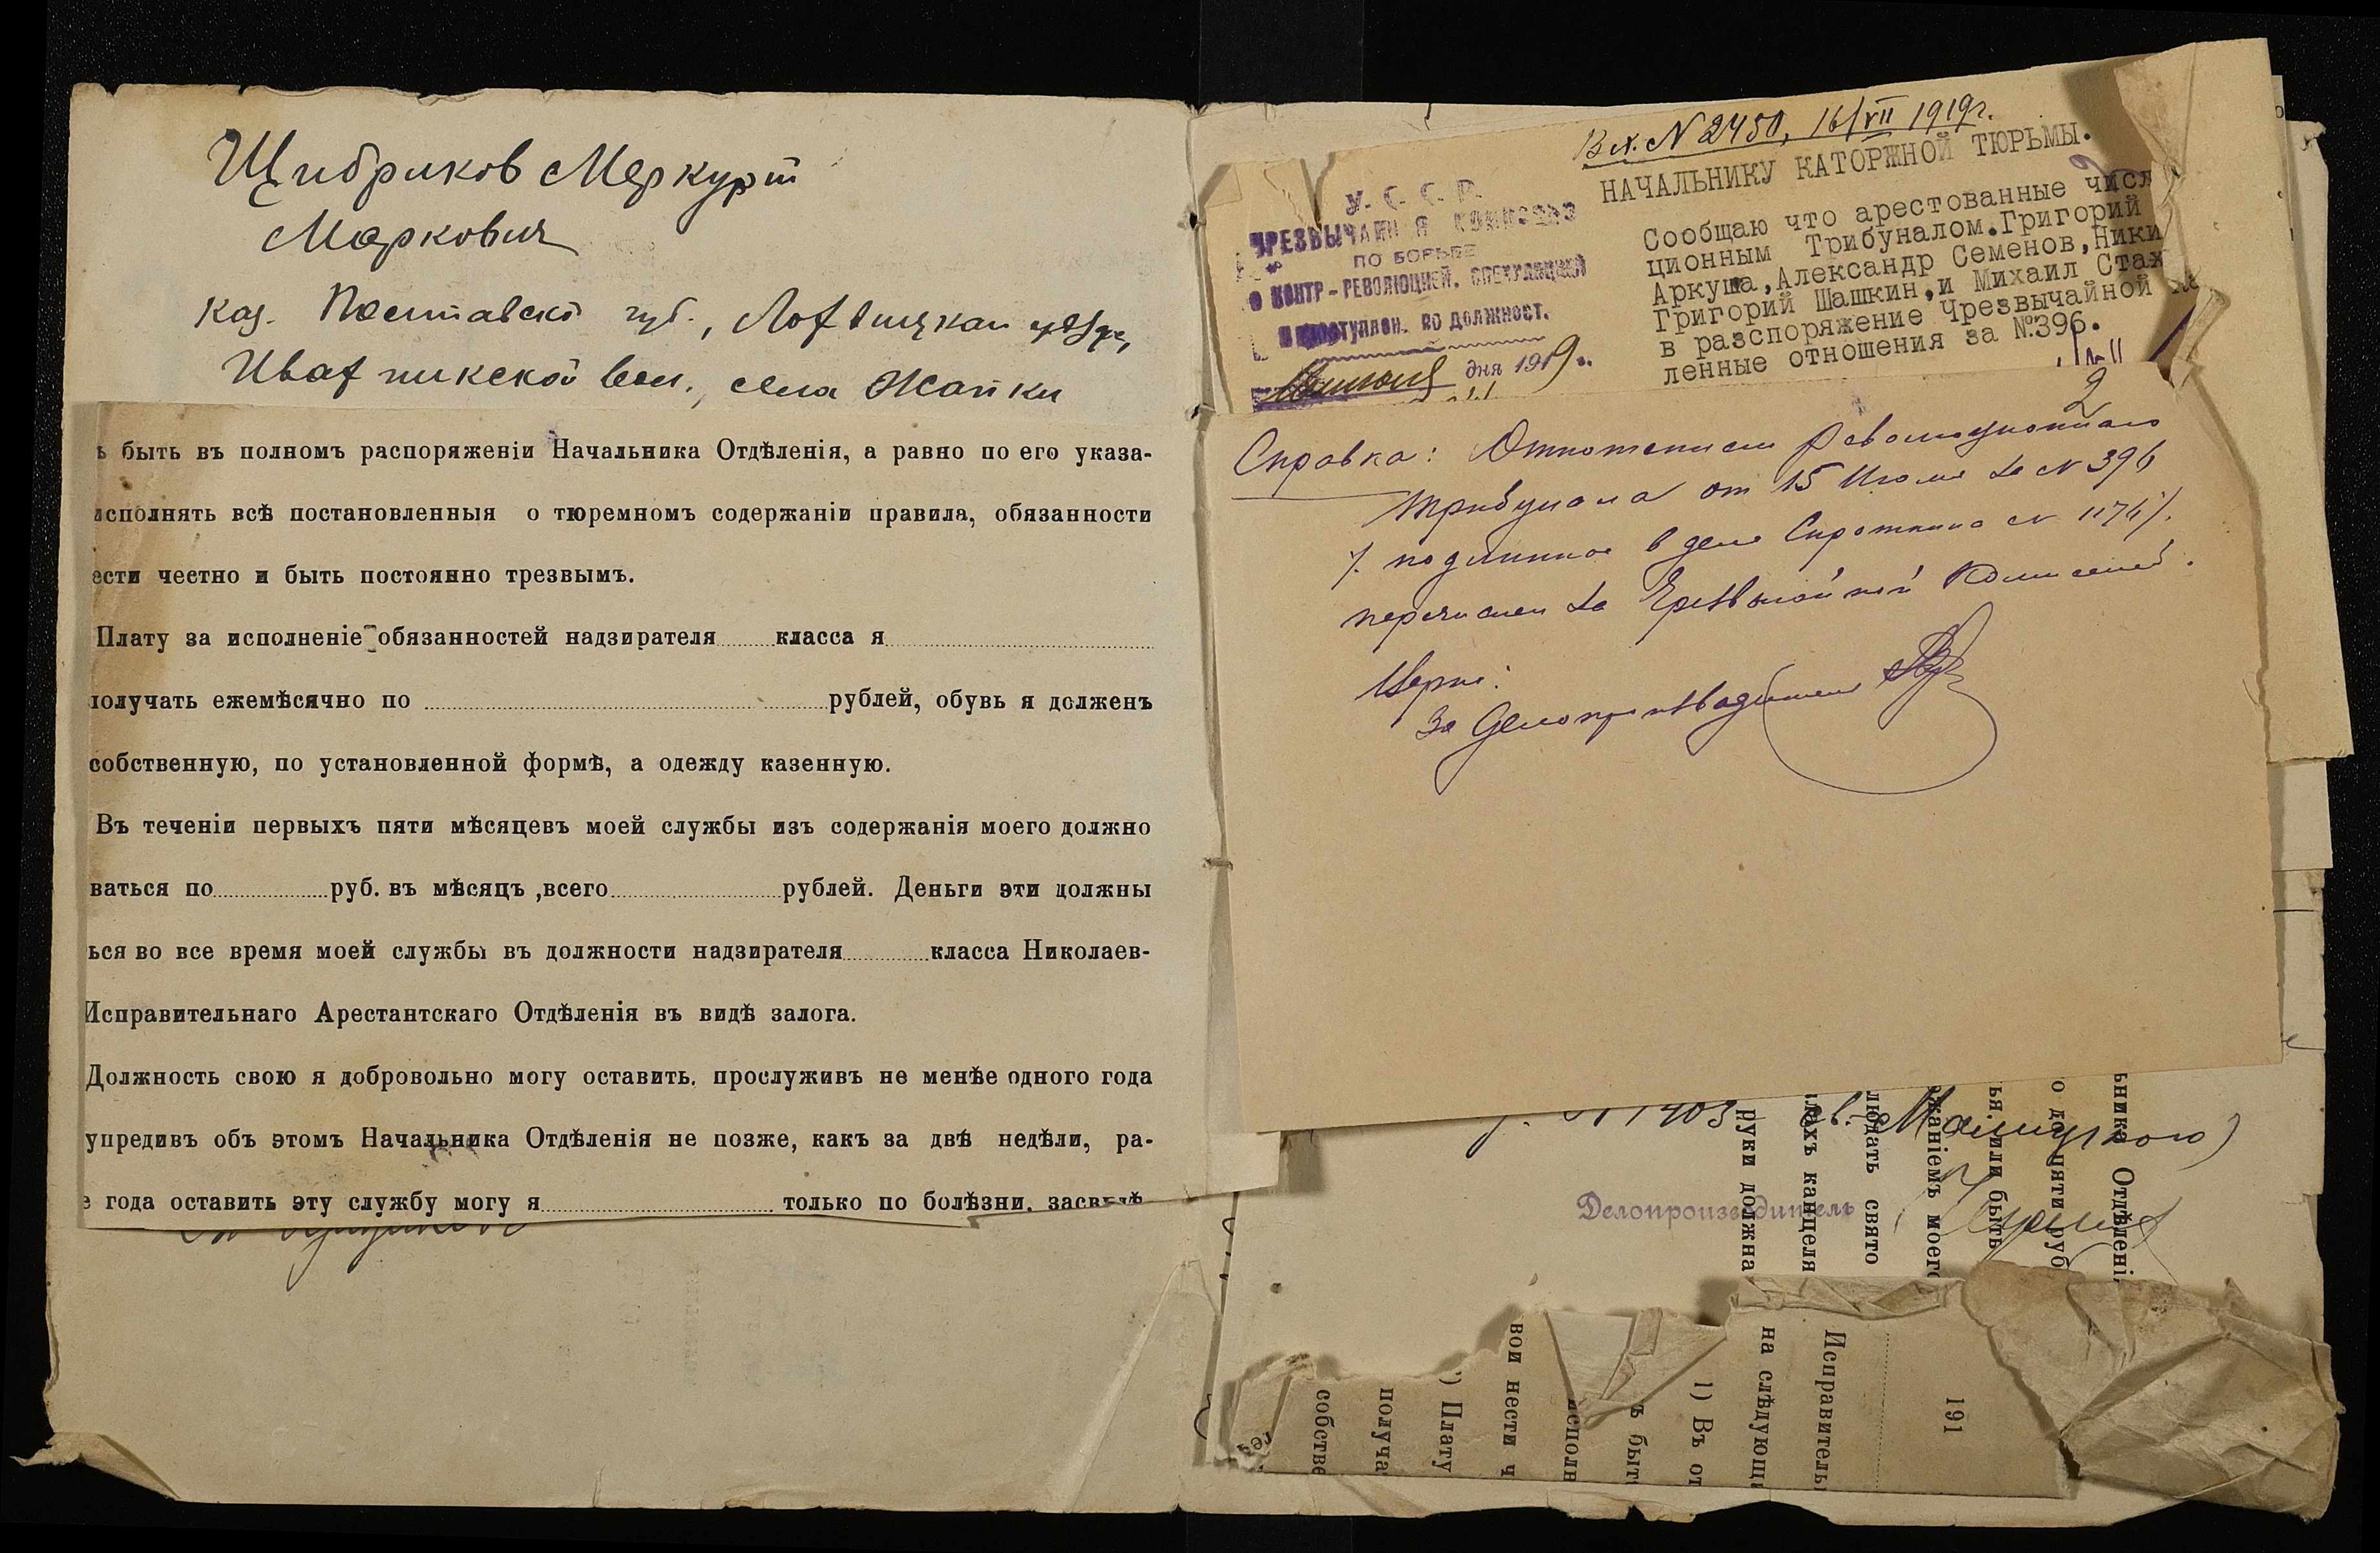 Щибриков Меркурій
Маркович
каз. Полтавской губ., Лохвицкаго уезда,
волос., села Жайки
ь быть въ полномъ распоряженіи Начальника Отдѣленія, а равно по его указа-
исполнять всѣ постановленныя о тюремномъ содержаніи правила, обязанности
ести честно и быть постоянно трезвымъ.
Плату за исполненіе обязанностей надзирателя класса я
получать ежемѣсячно по рублей, обувь я долженъ
собственную, по установленной формѣ, а одежду казенную.
Въ теченіи первыхъ пяти мѣсяцевъ моей службы изъ содержанія моего должно
ваться по руб. въ мѣсяцъ ,всего рублей. Деньги эти должны
ься во все время моей службы въ должности надзирателя класса Николаев-
Исправительнаго Арестантскаго Отдѣленія въ видѣ залога.
Должность свою я добровольно могу оставить, прослуживъ не менѣе одного года
упредивъ объ этомъ Начальника Отдѣленія не позже, какъ за двѣ недѣли, ра-
е года оставить эту службу могу я только по болѣзни, засвидѣ
Вх. N 2450, 16/VII 1919г.
НАЧАЛЬНИКУ КАТОРЖНОЙ ТЮРЬМЫ.
У. С. С. Р.
ЧРЕЗВЫЧАЙНАЯ КОМИССИЯ
ПО БОРЬБЕ
С КОНТР-РЕВОЛЮЦИЕЙ, СПЕКУЛЯЦИЕЙ
И ПРЕСТУПЛЕН. ПО ДОЛЖНОСТ.
дня 1919 г.
Сообщаю что арестованные числ
ционным Трибуналом.Григорий
Аркуша,Александр Семенов,Ники
Григорий Шашкин,и Михаил Стах
в распоряжение Чрезвычайной
ленные отношения за №396.
2
Справка: Отношением Революционного
трибунала от 15 Июля за N 396
/. подлинное в деле Сироткина N 1176/.
перечислен за Чрезвычайной Комиссией.
Верно:
За Делопроизводителя
N 1403
Делопроизводитель
руки должна
лахъ канцеля
людать свято
жаніемъ моего
ья или быть
о до пяти руб
ьника Отдѣлені
191
Исправитель
на слѣдующи
1) Въ от
ъ быт
исполн
вои нести ч
) Плату
получа
собстве